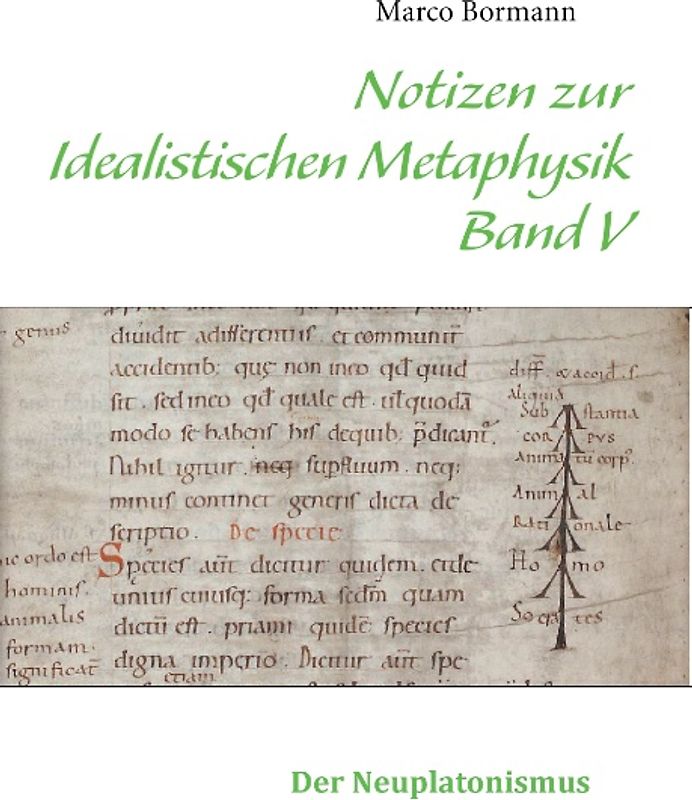 Marco Bormann
Notizen zur
Idealistischen Metaphysik
Band V
genuis
diuidit adifferentiis. et communir̄
accidentib; que non ineo qd̄ quid
sit. sed ineo qd̄ quale est. ul̄ quodā
modo se habens his dequib; p̄dicant᷒.
Nihil igitur. neq; supfluum. neq;
minus continet generis dicta de
scriptio. De specie
Species aut̄ dicitur quidem. et de
unius cuiusq; forma sedm̄ quam
dictū est. priami quidē species
digna imperio. Dicitur aut̄ spe
etiam
ordo est
hominis.
animalis
formam.
significat̄
aliquis
Sub stantia
cor pus
Anima tū corp̄.
Anim al
Rati onale
Ho mo
Socra tes
Der Neuplatonismus